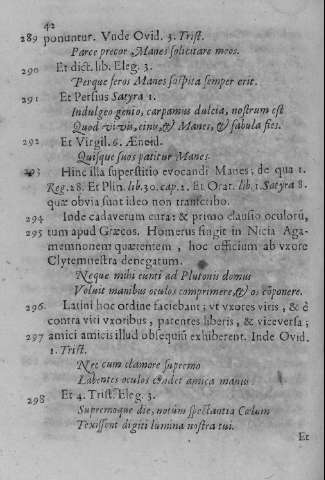 42
289 ponuntur. Vnde Ovid. 3. Trist.
Parce precor Manes solicitare meos.
290 Et dict. lib. Eleg. 3.
Perque seros Manes sospita semper erit.
291 Et Persius Satyra 1.
Indulgeo genio, carpamus dulcia, nostrum est
Quod vivis, cinis, & Manes, & fabula fies.
292 Et Virgil. 6. Æneid.
Quisque suos patitur Manes.
293 Hinc illa superstitio evocandi Manes; de qua 1.
Reg. 28. Et Plin. lib. 30. cap. 1. Et Orat. lib. 1. Satyra 8.
quæ obvia sunt ideo non transcribo.
294 Inde cadaverum cura: & primo clausio oculorū,
295 tum apud Græcos. Homerus fingit in Nicia Aga-
memnonem quærentem, hoc officium ab vxore
Clytemnestra denegatum.
Neque mihi eunti ad Plutonis domus
Voluit manibus oculos comprimere, & os cōponere.
296. Latini hoc ordine faciebant; vt vxores viris, & è
contra viri vxoribus, parentes liberis, & viceversa;
297 amici amicis illud obsequiū exhiberent. Inde Ovid.
1. Trist.
Nec cum clamore supremo
Labentes oculos cōdet amica manus
298 Et 4. Trist. Eleg. 3.
Supremoque die, notum spectantia Cœlum
Texissent digiti lumina nostra tui.
Et